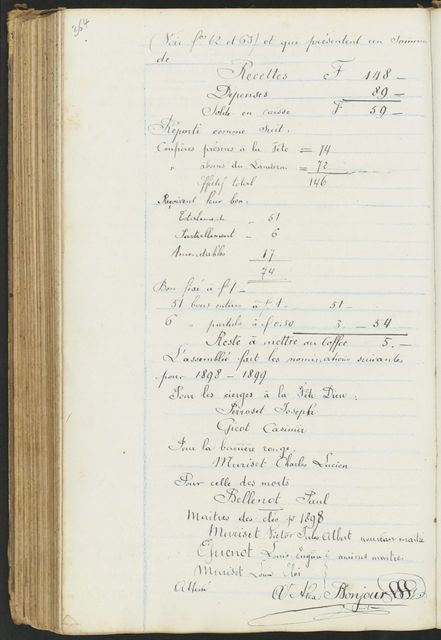 364
(Voir fos 62 et 63) et qui présentent en somme
de
Recettes F 148 —
Dépenses 89 —
Solde en caisse F 59 —
Réparti comme suit :
Confrères présents à la Fête = 74
" absents du Landeron = 72
Effectif total 146
Reçoivent leur bon :
Totalement 51
Partiellement - 6
Amendables 17
74
Bon fixé à f 1 —
51 bons entiers à f 1 51 —
6 " partiels à f 0.50 3 — 54
Reste à mettre au Coffre 5. —
L'assemblée fait les nominations suivantes
pour 1898 – 1899
Pour les cierges à la Fête Dieu :
Perroset Joseph
Gicot Casimir
Pour la bannière rouge :
Muriset Charles Lucien
Pour celle des morts
Bellenot Paul
Maîtres des clés pr 1898
Muriset Victor Jules Albert nouveau maître
Quenot Louis Eugène anciens maîtres
Muriset Louis
Attesté Alex Bonjour